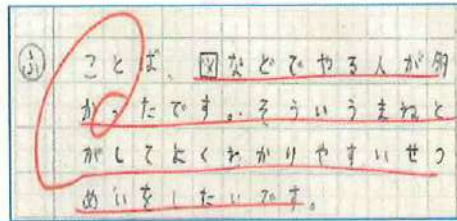 ふ ことば、図などでやる人が多
かったです。そういうまねと
がしてよくわかりやすいせつ
めいをしたいです。